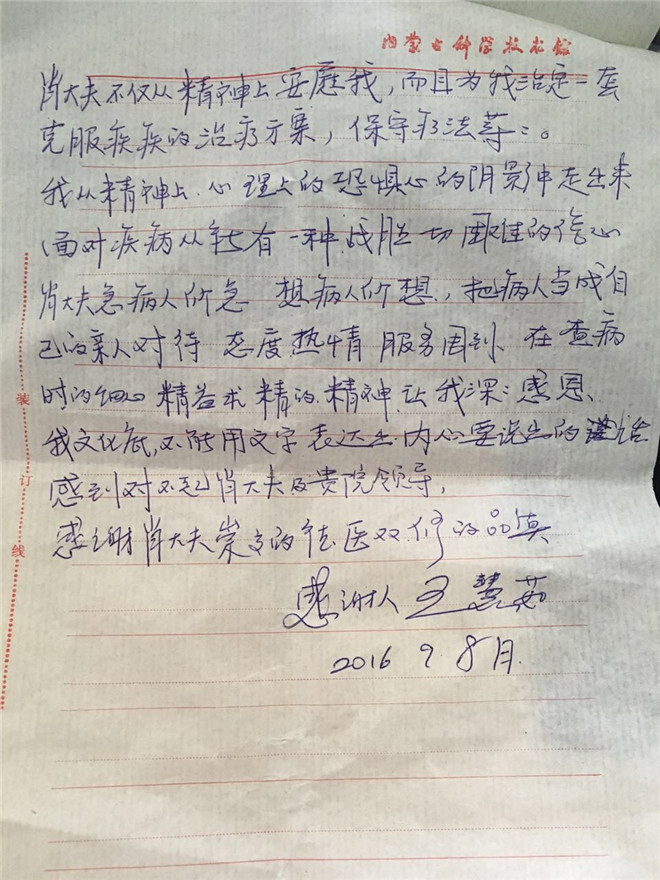 内蒙古科学技术馆
肖大夫不仅从精神上安慰我，而且为我治定一套
克服疾病的治疗方案，保守疗法等：。
我从精神上.心理上的恐惧心的阴影中走出来
面对疾病从新有一种战胜一切困难的信心
肖大夫急病人所急 想病人所想，把病人当成自
己的亲人对待 态度热情 服务周到 在查病
时的细心 精益求精的精神 让我深：感恩、
我文化底，不能用文字表达出内心要说出的话
感到对不起肖大夫及贵院领导，
感谢肖大夫崇高的德医双修的品质
感谢人 王慧茹
2016 9. 8月.
装
订
线